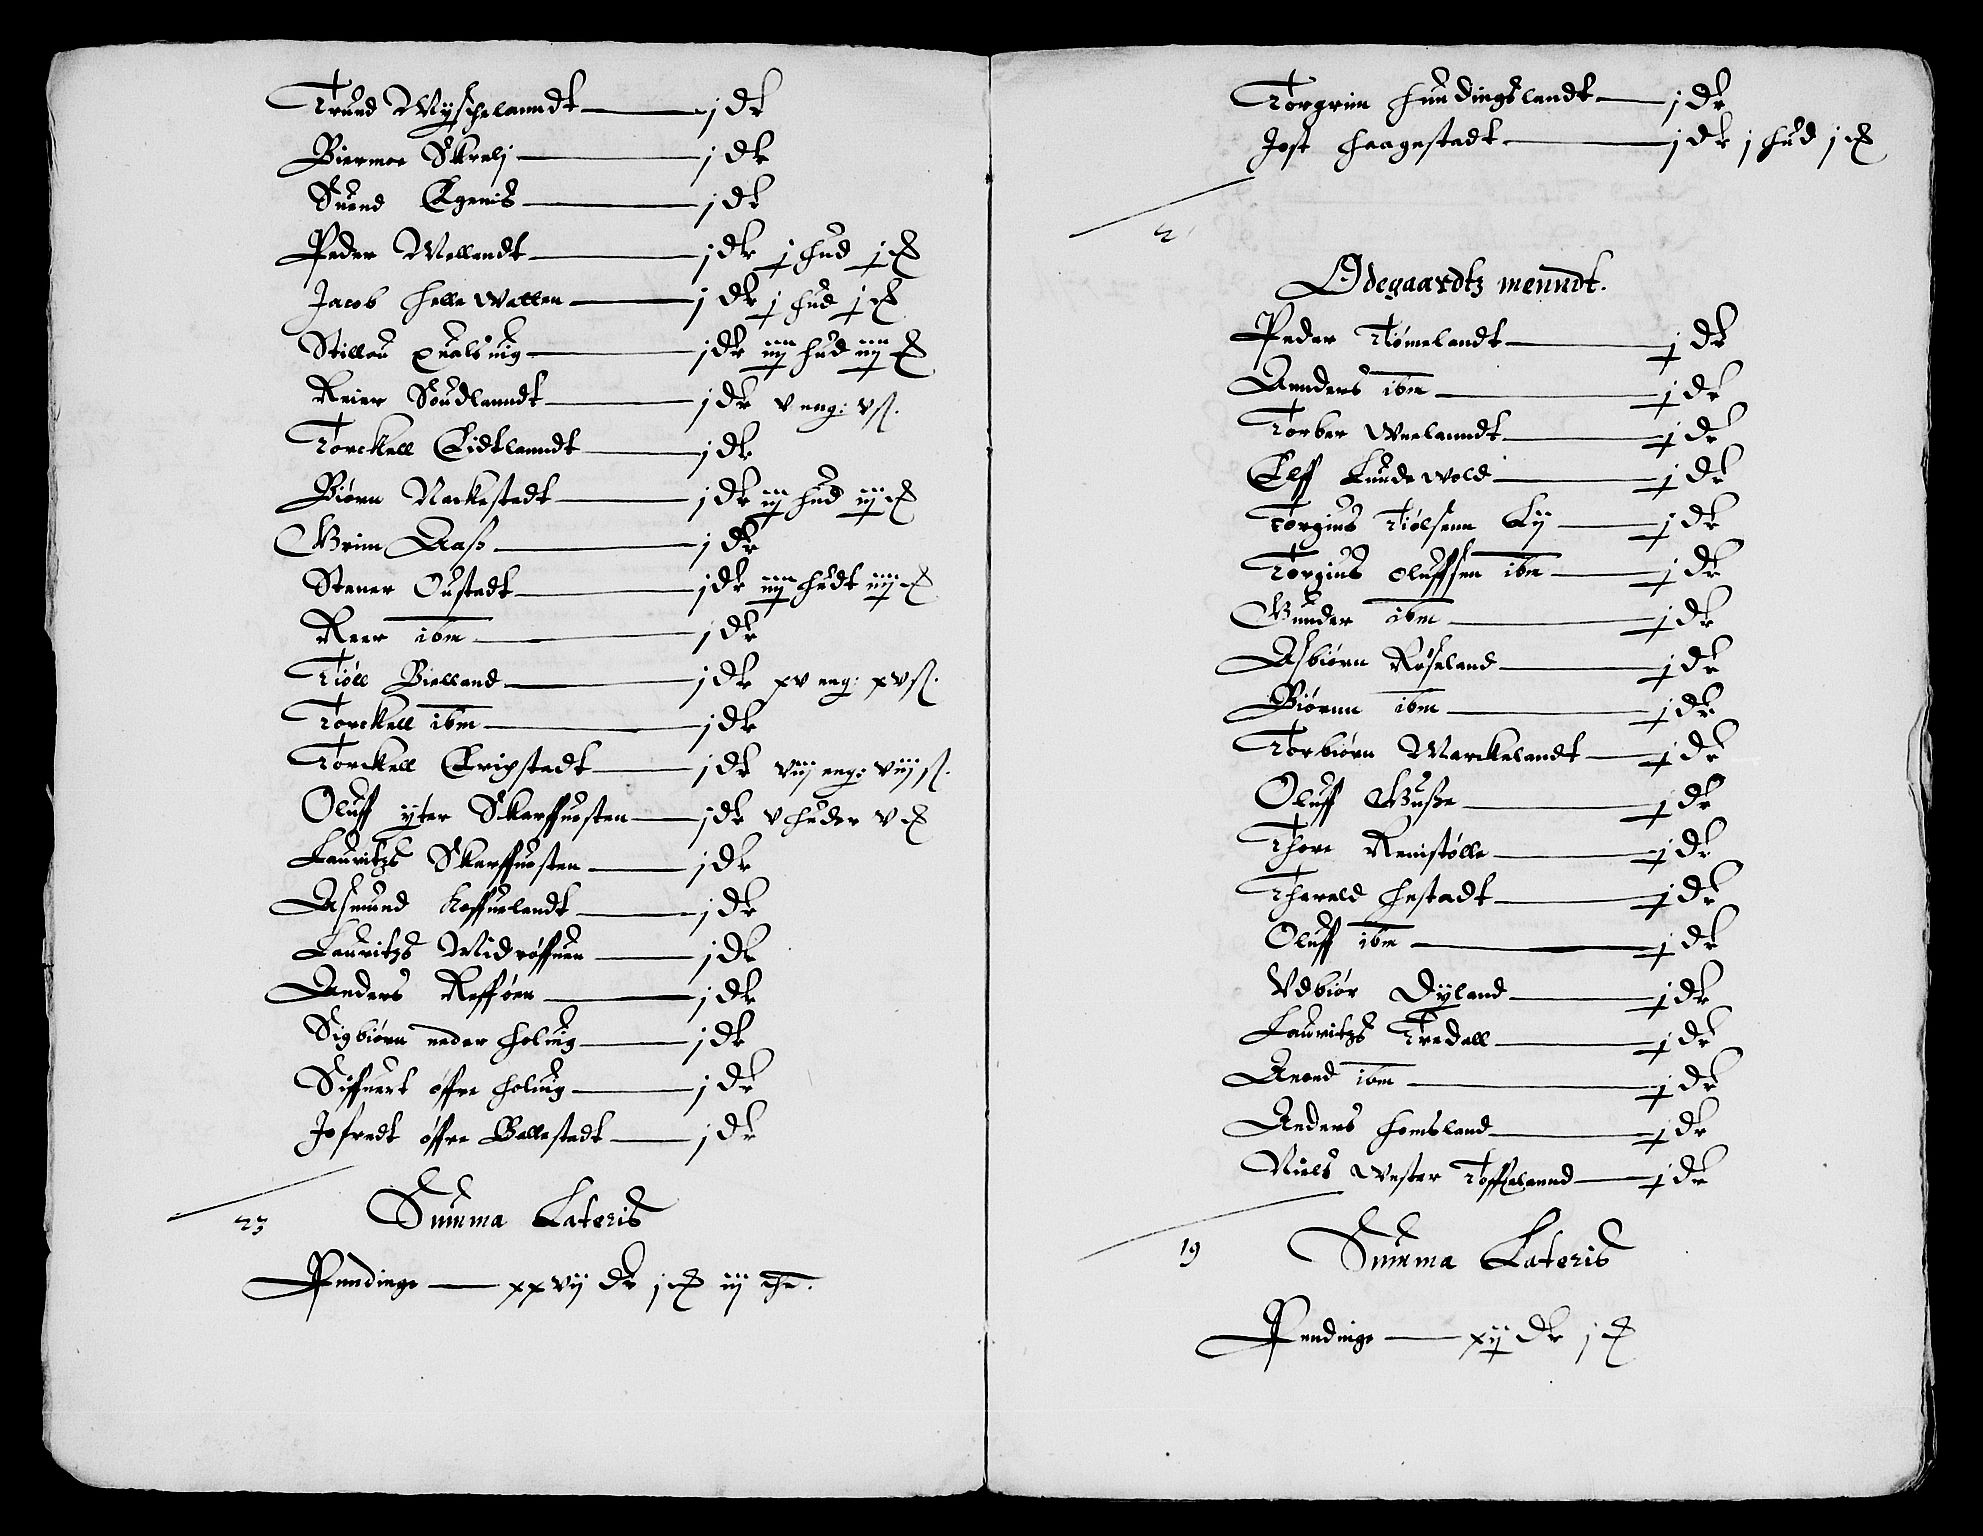 Trund Myschelanndt — j dr
Biermoe Skrelj — j dr
Suend Egenis — j dr
Peder Mellandt — j dr j hud j
Jacob Helle Watten — j dr j hud j
Stillou Qualsuig — j dr iiij hud iiij
Reier Soudlanndt — j dr v eng: v ß.
Torckell Eidtlanndt — j dr
Biørn Nackestadt — j dr iij hud iij
Grim Aaß — j dr
Stener Oustadt — j dr iiij hudt iiij
Reer ibm — j dr
Tiøll Bielland — j dr xv eng: xv ß.
Torckell ibm — j dr
Torckell Eripstadt — j dr viij eng: viij ß.
Oluff ytter Skarffuesten — j dr v huder v
Lauritzs Skarffuesten — j dr
Asmund Koffuelandt — j dr
Lauritzs Midrøffuen — j dr
Anders Refføen — j dr
Sigbiørn neder Holuig — j dr
Siffuert øffre Holuig — j dr
Jofredt øffre Ballestadt — j dr
23 Summa Lateris
Pendinge — xxvij dr j iij
Torgrim Hundingslandt — j dr
Jost Haagestadt — j dr j hud j
2
Ødegaardtz menndt.
Peder Tiømelandt — j dr
Annders ibm — j dr
Torber Weelanndt — j dr
Elff Lunde wold — j dr
Torgius Tiølsenn Ly — j dr
Torgius Oluffsen ibm — j dr
Gunder ibm — j dr
Asbiørn Røseland — j dr
Biørnn ibm — j dr
Torbiørn Marckelandt — j dr
Oluff Guße — j dr
Thore Remistølle — j dr
Tharald Hestadt — j dr
Oluff ibm — j dr
Vdbiør Dyland — j dr
Lauritzs Tredall — j dr
Anond ibm — j dr
Anders Homsland — j dr
Niels Wester Toffelannd — j dr
19 Summa Lateris
Pendinge — xij dr j